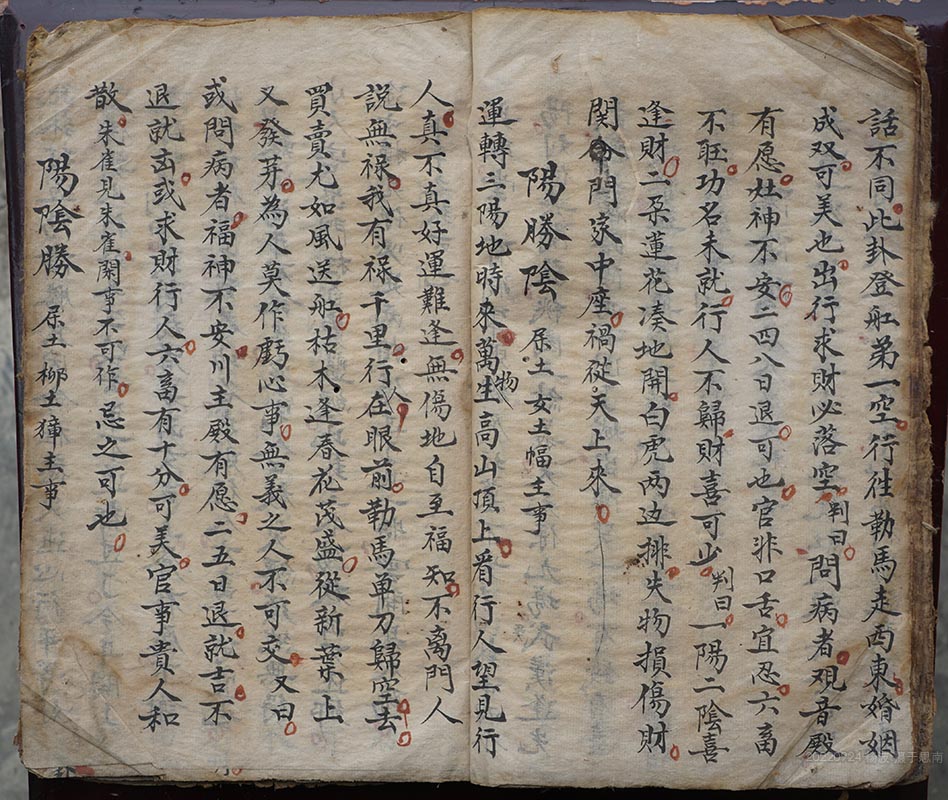 話不同此卦登舡第一空行往勒馬走西東婚姻
成双可美也出行求財必落空判曰問病者观音殿
有愿灶神不安二四八日退可也官非口舌宜忍六畜
不旺功名未就行人不歸財喜可少判曰一陽二陰喜
逢財二朵蓮花凑地開白虎两边排失物損傷財
関命門家中座禍從天上來
陽勝陰 屎土女土幅主事
運轉三陽地時來萬物生高山頂上看行人望見行
人真不真好運難逢無傷地自至福知不离門人
説無禄我有禄千里行人在眼前勒馬单刀歸空去
買賣尤如風送舡枯木逢春花茂盛從新葉上
又發芽為人莫作虧心事無義之人不可交又曰
或問病者福神不安川主殿有愿二五日退就吉不
退就凶或求財行人六畜有十分可美官事貴人和
散朱雀見朱雀閑事不可作忌之可也
陽陰勝 屎土柳土獐主事
20220724 徐波 摄于思南